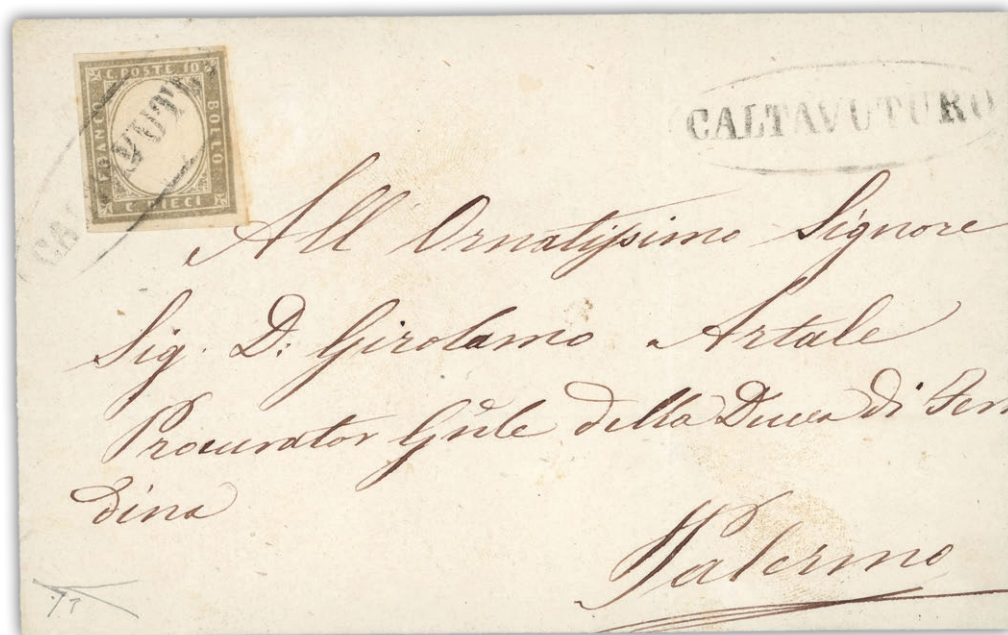 C. POSTE 10
FRANCO
BOLLO
C. DIECI
CALTAVUTURO
All Ornatissimo Signore
Sig. D. Girolamo Artale
Procurator Gñle della Ducea di Fer
dina
Palermo